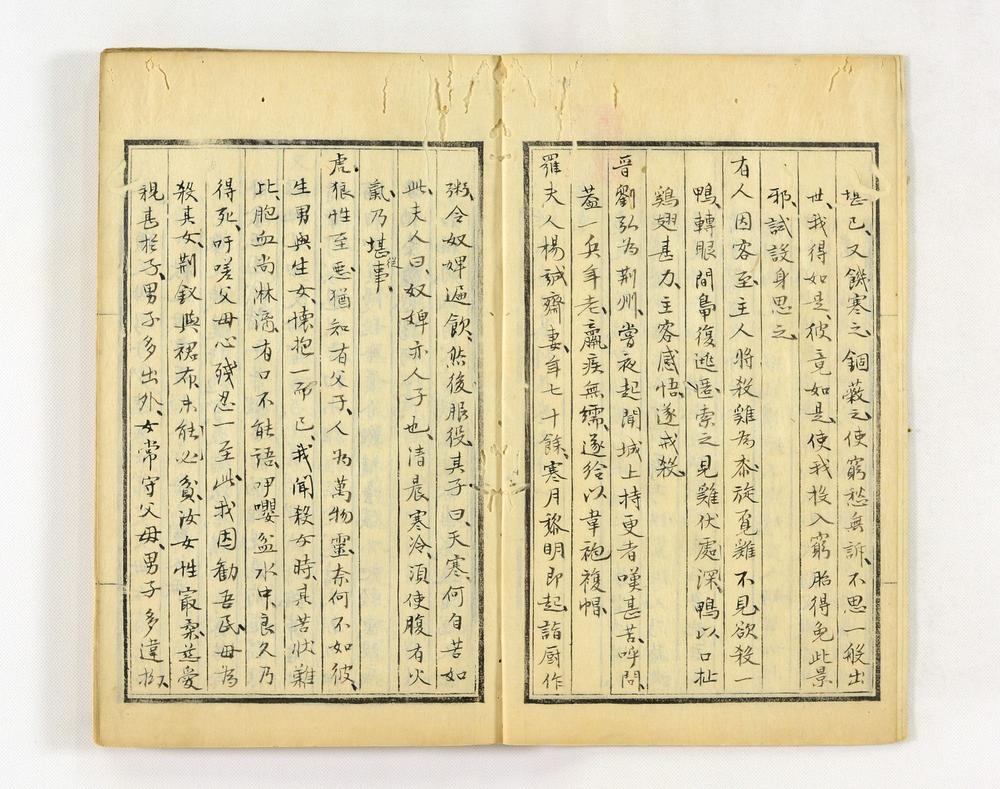 堪已、又饑寒之、錮蔽之、使窮愁無訴、不思一般出
世、我得如是、彼竟如是、使我投入窮胎、得免此景
邪、試設身思之、
有人因客至、主人將殺雞為黍、旋覓雞不見、欲殺一
鴨、轉眼間鳧復逃匿、索之見雞伏處深、鴨以口扯
鷄翅甚力、主客感悟、遂戒殺、
晉劉弘為荆州、嘗夜起、聞城上持更者嘆甚苦、呼問、
蓋一兵年老、羸疾無襦、遂給以韋袍複帽、
羅夫人楊誠齋妻、年七十餘、寒月黎明即起、詣厨作
粥、令奴婢遍飲、然後服役、其子曰、天寒、何自苦如
此、夫人曰、奴婢亦人子也、清晨寒冷、須使腹有火
氣、乃堪從事、
虎狼性至惡、猶知有父子、人為萬物靈、奈何不如彼、
生男與生女、懷抱一而已、我聞殺女時、其苦狀難
比、胞血尚淋漓、有口不能語、呼嚶盆水中、良久乃
得死、吁嗟父母心、殘忍一至此、我因勸吾民、毋為
殺其女、荆釵與裙布、未能必貧汝、女性最柔、慈愛
親甚於子、男子多出外、女常守父母、男子多違拗、